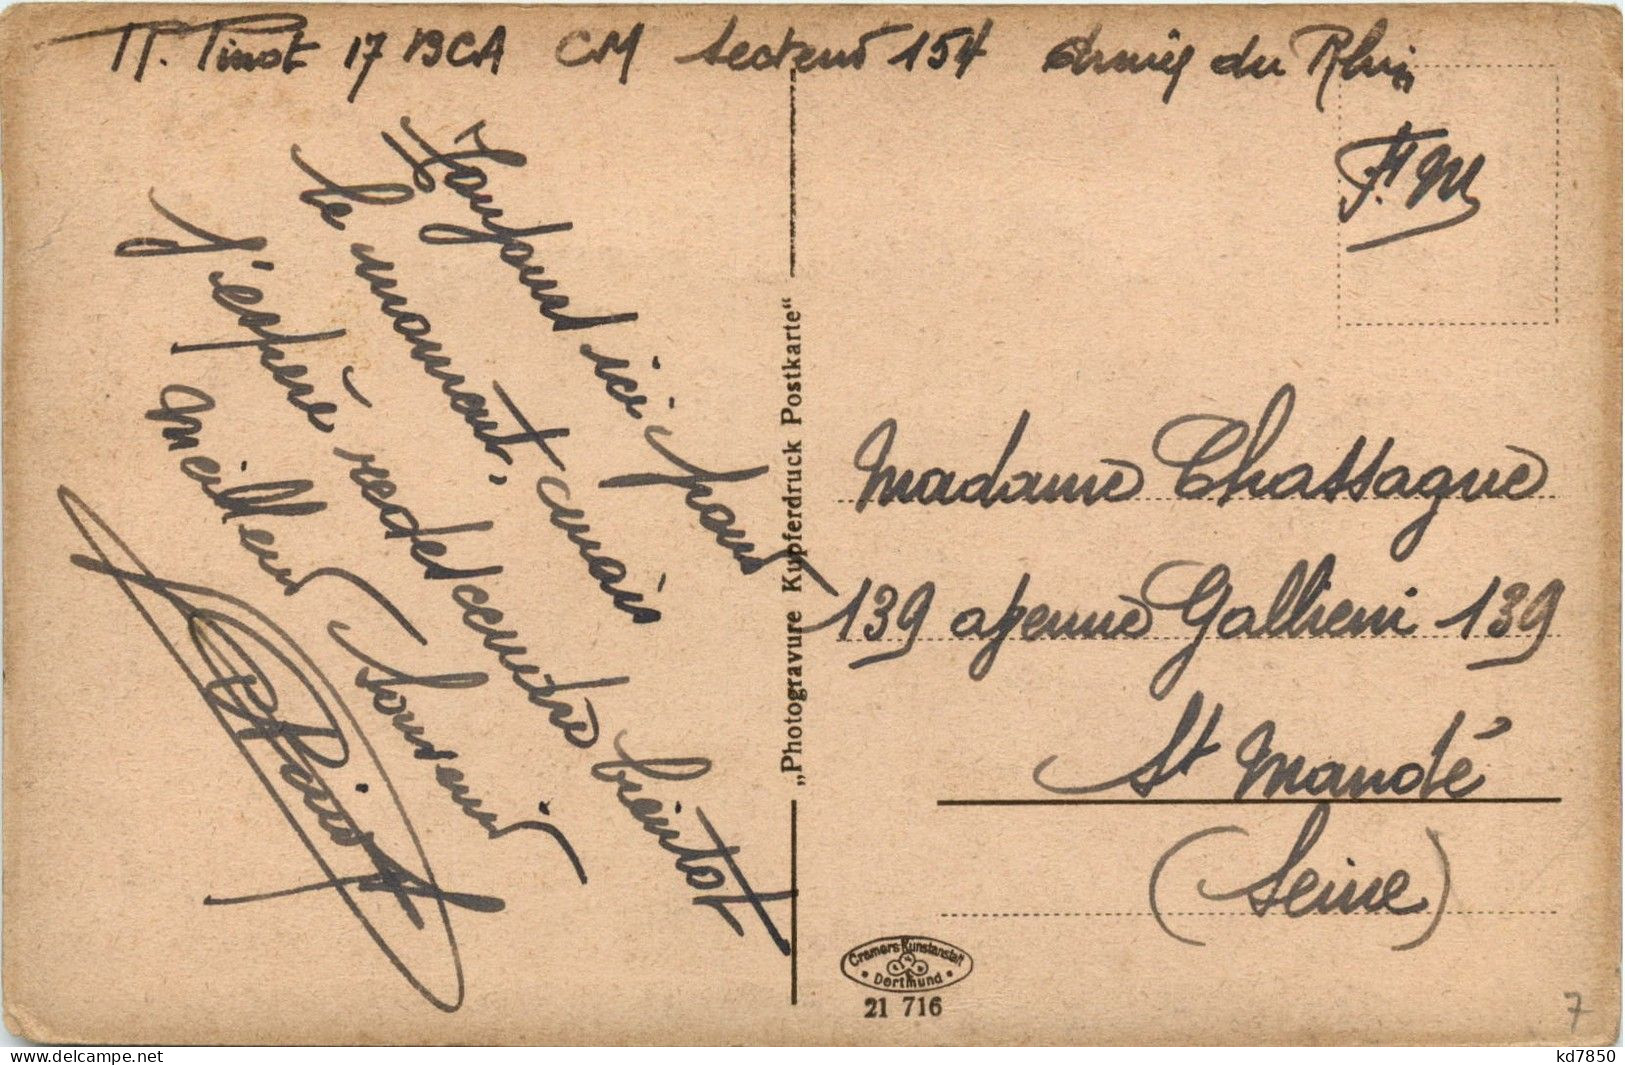 Pinot 17 BCA CM Secteur 154 Armée du Rhin
F.M
Toujours ici pour
le moment, mais
j'espère redescendre bientot
Meilleur Souvenir
Pinot
„Photogravure Kupferdruck Postkarte“
Madame Chassagne
139 avenue Gallieni 139
St Mandé
(Seine)
Cramers Kunstanstalt
Dortmund
21 716
7
kd7850